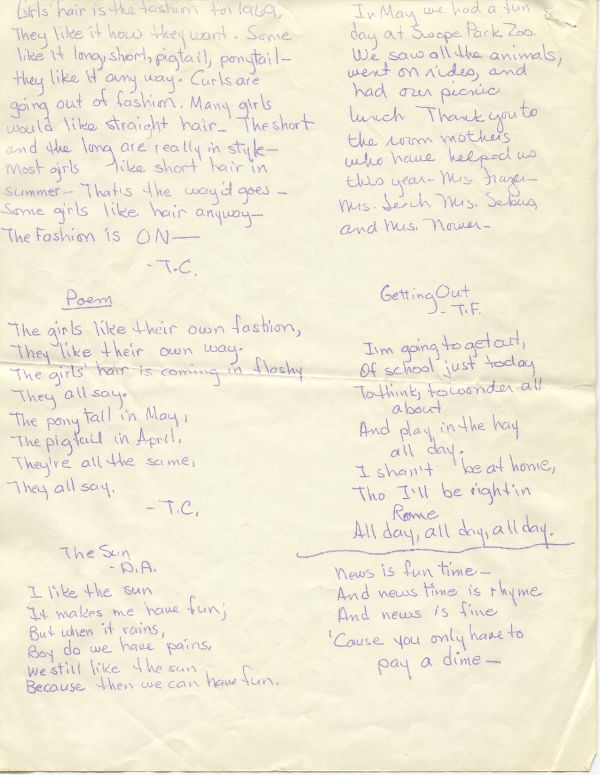 Girls' hair is the fashion for 1969.
They like it how they want. Some
like it long, short, pigtail, ponytail—
they like it any way. Curls are
going out of fashion. Many girls
would like straight hair— The short
and the long are really in style—
Most girls like short hair in
summer— That's the way it goes—
Some girls like hair anyway—
The Fashion is ON—
- T.C.
Poem
The girls like their own fashion,
They like their own way.
The girls' hair is coming in flashy
They all say.
The pony tail in May,
The pigtail in April,
They're all the same,
They all say.
- T.C.
The Sun
- D.A.
I like the sun
It makes me have fun;
But when it rains,
Boy do we have pains,
We still like the sun
Because then we can have fun.
In May we had a fun
day at Swope Park Zoo.
We saw all the animals,
went on rides, and
had our picnic
lunch. Thank you to
the room mothers
who have helped us
this year— Mrs. Frazer—
Mrs. Lerch, Mrs.
and Mrs. Nower—
Getting Out
- T.F.
I'm going to get out,
Of school just today
To think, to wonder all
about
And play in the hay
all day.
I shan't be at home,
Tho I'll be right in
Rome
All day, all day, all day.
News is fun time—
And news time is rhyme
And news is fine
'Cause you only have to
pay a dime—